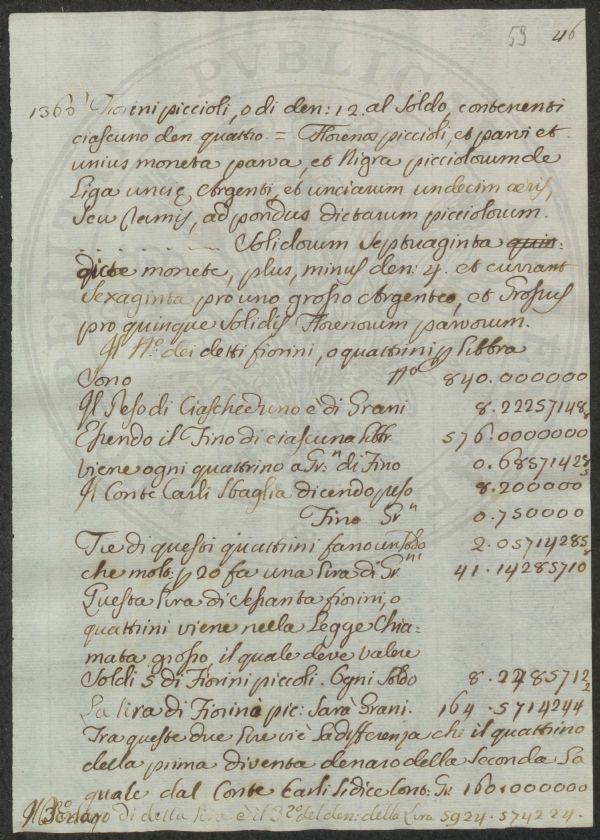 59 46
1366 Fiorini piccioli, o di den: 12. al Soldo, contenenti
ciascuno den quattro = Florenos piccioli, et parvi et
unius moneta parva, et Nigra picciolorum de
Liga uncię Argenti, et unciarum undecim aeris,
seu Ramis, ad pondus dictarum picciolorum.
. . . . . . . . Solidorum Septuaginta quin:
dicte monete, plus, minus den: 4. et currant
Sexaginta pro uno grosso Argenteo, et Grossus
pro quinque Solidis Florenorum parvorum.
Il N.o dei detti fiorini, o quattrini p libbra
Sono No 840.000000
Il Peso di Ciascheduno è di Grani 8.22257148
Essendo il Fino di ciascuna libbr. 576.0000000
viene ogni quattrino a Gr.n di Fino 0.68571428
Il Conte Carli Sbaglia dicendo peso 8.200000
Fino Gr.n 0.750000
Tre di questi quattrini fano un Soldo 2.05714285
che molt: p 20 fa una lira di Gr.ni 41.14285710
Questa lira di Sessanta fiorini, o
quattrini viene nella Legge Chia:
mata grosso, il quale deve valere
Soldi 5 di Fiorini piccoli. Ogni Soldo
La lira di Fiorini pic: Sarà Grani. 164.5714244
Tra queste due lire vi è la differenza che il quattrino
della prima diventa denaro della Seconda La
quale dal Conte Carli si dice Cont: Gr. 160.000000
di detta lira è il 32.o del den: della Lira 5924.574224.